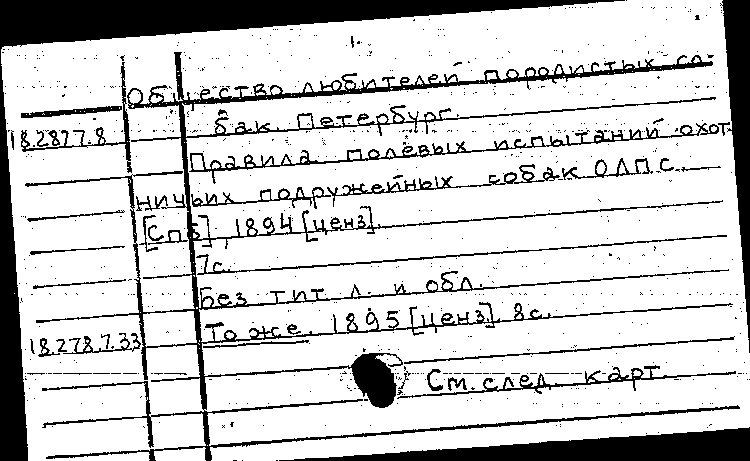 1.
Общество любителей породистых со-
18.2877.8 бак. Петербург.
Правила полевых испытаний охот-
ничьих подружейных собак ОЛПС.
[Спб], 1894 [ценз].
7с.
Без тит. л. и обл.
18.278.7.33 То же. 1895 [ценз]. 8с.
См. след. карт.